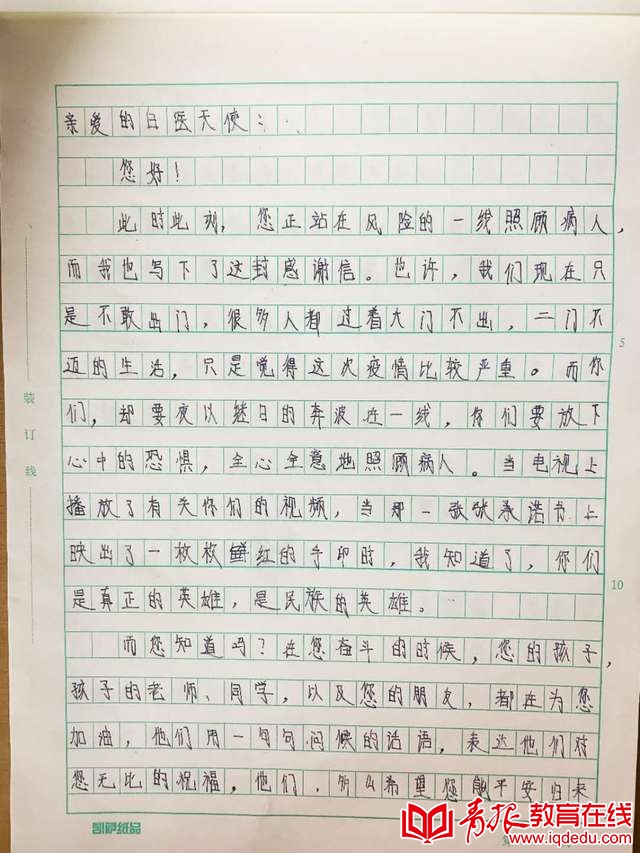 亲爱的白医天使：
您好！
此时此刻，您正站在风险的一线照顾病人，
而我也写下了这封感谢信。也许，我们现在只
是不敢出门，很多人都过着大门不出，二门不
5
迈的生活，只是觉得这次疫情比较严重。而你
们，却要夜以继日的奔波在一线，你们要放下
心中的恐惧，全心全意地照顾病人。当电视上
播放了有关你们的视频，当那一张张承诺书上
映出了一枚枚鲜红的手印时，我知道了，你们
10
是真正的英雄，是民族的英雄。
而您知道吗？在您奋斗的时候，您的孩子，
孩子的老师、同学，以及您的朋友，都在为您
加油，他们用一句句问候的话语，表达他们对
您无比的祝福，他们，多么希望您能平安归来
装订线
凯萨纸品
第
青报教育在线
www.iqdedu.com